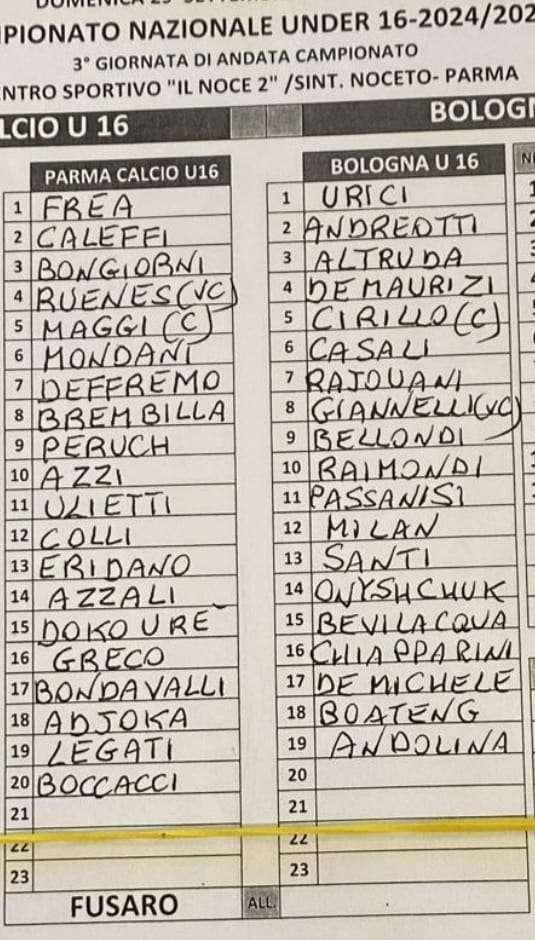 PIONATO NAZIONALE UNDER 16-2024/202
3° GIORNATA DI ANDATA CAMPIONATO
NTRO SPORTIVO "IL NOCE 2" /SINT. NOCETO- PARMA
LCIO U 16 BOLOGN
PARMA CALCIO U16 BOLOGNA U 16
1 FREA 1 URICI
2 CALEFFI 2 ANDREOTTI
3 BONGIORNI 3 ALTRUDA
4 RUENES (VC) 4 DE MAURIZI
5 MAGGI (C) 5 CIRILLO (C)
6 MONDANI 6 CASALI
7 DEFFREMO 7 RAJOUANI
8 BREMBILLA 8 GIANNELLI (VC)
9 PERUCH 9 BELLONDI
10 AZZI 10 RAIMONDI
11 ULIETTI 11 PASSANISI
12 COLLI 12 MILAN
13 ERIDANO 13 SANTI
14 AZZALI 14 ONYSHCHUK
15 DOKOURE 15 BEVILACQUA
16 GRECO 16 CHIAPPARINI
17 BONDAVALLI 17 DE MICHELE
18 ADJOKA 18 BOATENG
19 LEGATI 19 ANDOLINA
20 BOCCACCI 20
21 21
22 22
23 23
FUSARO ALL.